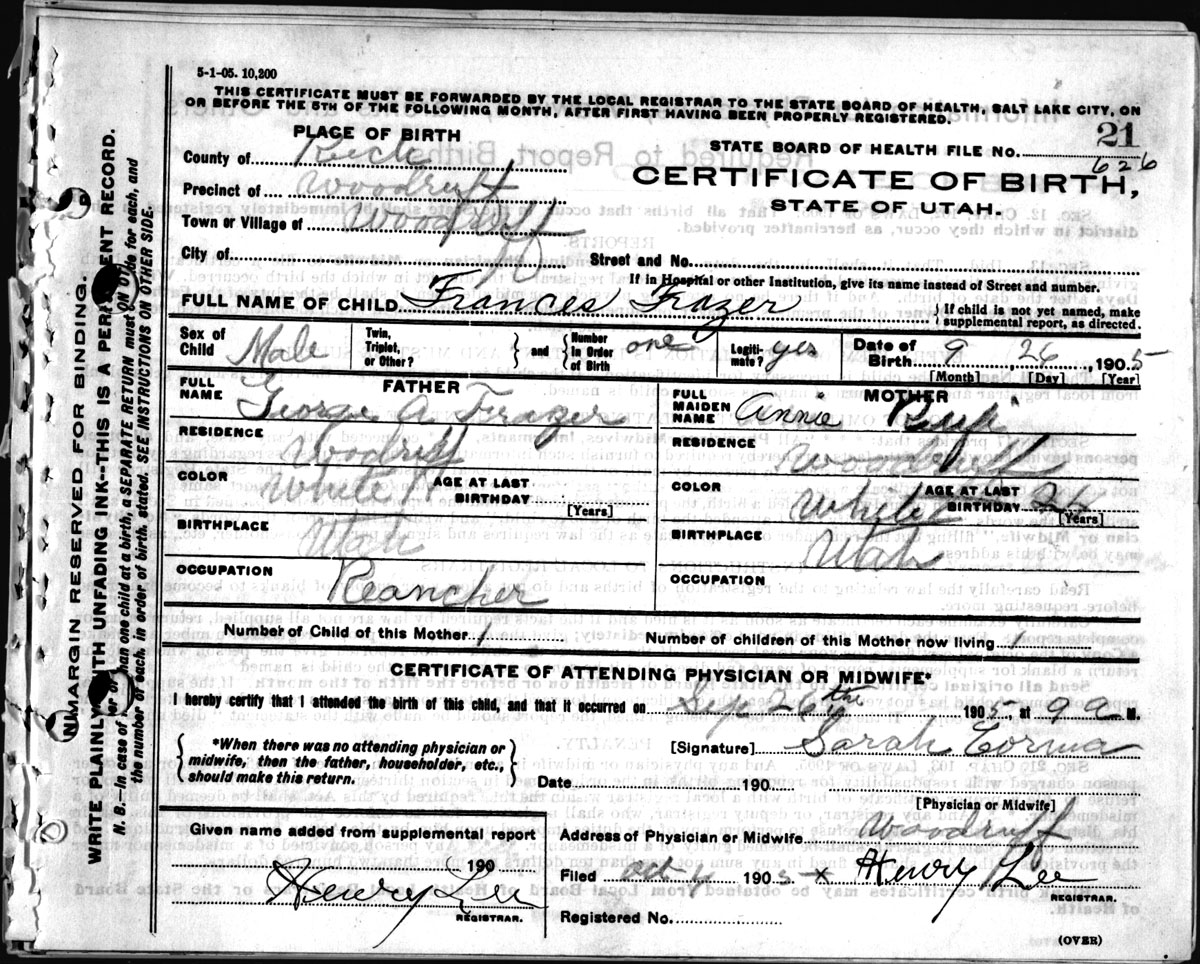 5-1-05. 10,200
THIS CERTIFICATE MUST BE FORWARDED BY THE LOCAL REGISTRAR TO THE STATE BOARD OF HEALTH, SALT LAKE CITY, ON
OR BEFORE THE 5TH OF THE FOLLOWING MONTH, AFTER FIRST HAVING BEEN PROPERLY REGISTERED.
21
PLACE OF BIRTH
STATE BOARD OF HEALTH FILE No. 626
County of Rich
CERTIFICATE OF BIRTH,
STATE OF UTAH.
Precinct of Woodruff
Town or Village of Woodruff
City of Street and No.
If in Hospital or other Institution, give its name instead of Street and number.
FULL NAME OF CHILD Frances Frazer { If child is not yet named, make
supplemental report, as directed.
Sex of Child Male Twin, Triplet, or Other? } and { Number in Order of Birth one Legiti- mate? yes Date of Birth 9 26 1905
[Month] [Day] [Year]
FATHER
FULL NAME George A Frazer
RESIDENCE Woodruff
COLOR White AGE AT LAST BIRTHDAY
[Years]
BIRTHPLACE Utah
OCCUPATION Reancher
MOTHER
FULL MAIDEN NAME Annie
RESIDENCE Woodruff
COLOR White AGE AT LAST BIRTHDAY
[Years]
BIRTHPLACE Utah
OCCUPATION
Number of Child of this Mother 1 Number of children of this Mother now living 1
CERTIFICATE OF ATTENDING PHYSICIAN OR MIDWIFE*
I hereby certify that I attended the birth of this child, and that it occurred on Sep 26th 1905, at 9 a M.
{ *When there was no attending physician or
midwife, then the father, householder, etc.,
should make this return. }
[Signature] Sarah
Date 190
[Physician or Midwife]
Given name added from supplemental report
190
Henry Lee
REGISTRAR.
Address of Physician or Midwife Woodruff
Filed 1905 x Henry Lee
REGISTRAR.
Registered No.
(OVER)
MARGIN RESERVED FOR BINDING.
WRITE PLAINLY WITH UNFADING INK--THIS IS A PERMANENT RECORD.
N. B.—In case of more than one child at a birth, a SEPARATE RETURN must be made for each, and
the number of each, in order of birth, stated. SEE INSTRUCTIONS ON OTHER SIDE.